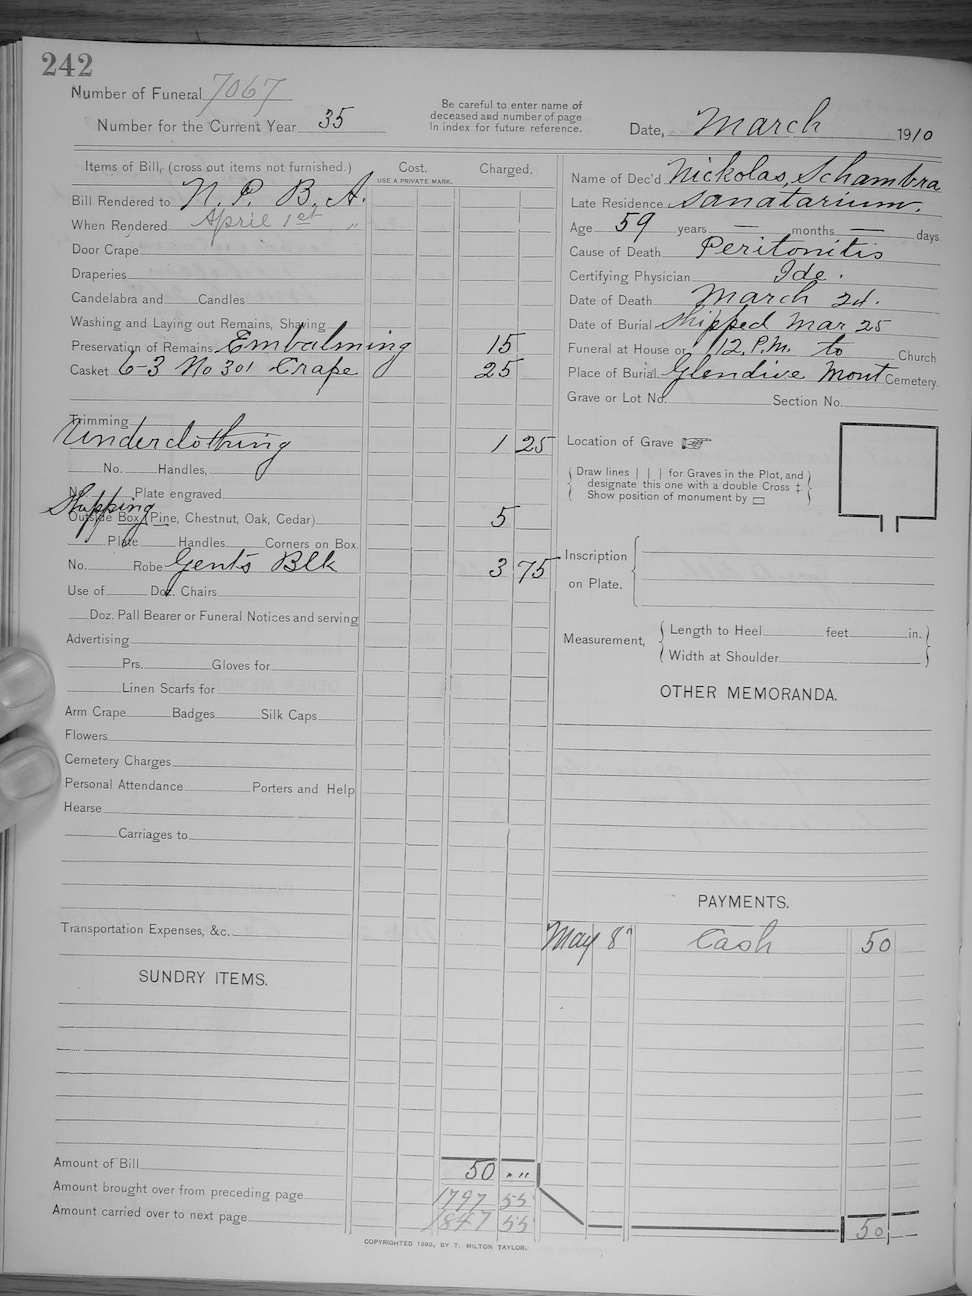 242
Number of Funeral 7067
Number for the Current Year 35
Be careful to enter name of
deceased and number of page
In index for future reference.
Date, March 1910
Items of Bill, (cross out items not furnished.) Cost. Charged.
USE A PRIVATE MARK.
Bill Rendered to N. P. B. A.
When Rendered April 1st "
Door Crape
Draperies
Candelabra and Candles
Washing and Laying out Remains, Shaving
Preservation of Remains Embalming 15
Casket 6-3 No 301 Crape 25
Trimming
Underclothing 1 25
No. Handles,
No. Plate engraved
Shipping
Outside Box (Pine, Chestnut, Oak, Cedar) 5
Plate Handles Corners on Box
No. Robe Gents Blk 3 75
Use of Doz. Chairs
Doz. Pall Bearer or Funeral Notices and serving
Advertising
Prs. Gloves for
Linen Scarfs for
Arm Crape Badges Silk Caps
Flowers
Cemetery Charges
Personal Attendance Porters and Help
Hearse
Carriages to
Transportation Expenses, &c.
SUNDRY ITEMS.
Amount of Bill 50 "
Amount brought over from preceding page 1797 55
Amount carried over to next page 1847 55
Name of Dec'd Nickolas Schambra
Late Residence Sanatarium.
Age 59 years — months — days
Cause of Death Peritonitis
Certifying Physician Ide.
Date of Death March 24.
Date of Burial Shipped Mar 25
Funeral at House or 12, P.M. to Church
Place of Burial. Glendive Mont Cemetery.
Grave or Lot No. Section No.
Location of Grave ☞
Draw lines | | | for Graves in the Plot, and
designate this one with a double Cross ‡
Show position of monument by ▭
Inscription
on Plate.
Measurement,
Length to Heel feet in.
Width at Shoulder
OTHER MEMORANDA.
PAYMENTS.
May 8" Cash 50
50
COPYRIGHTED 1890, BY T. MILTON TAYLOR.